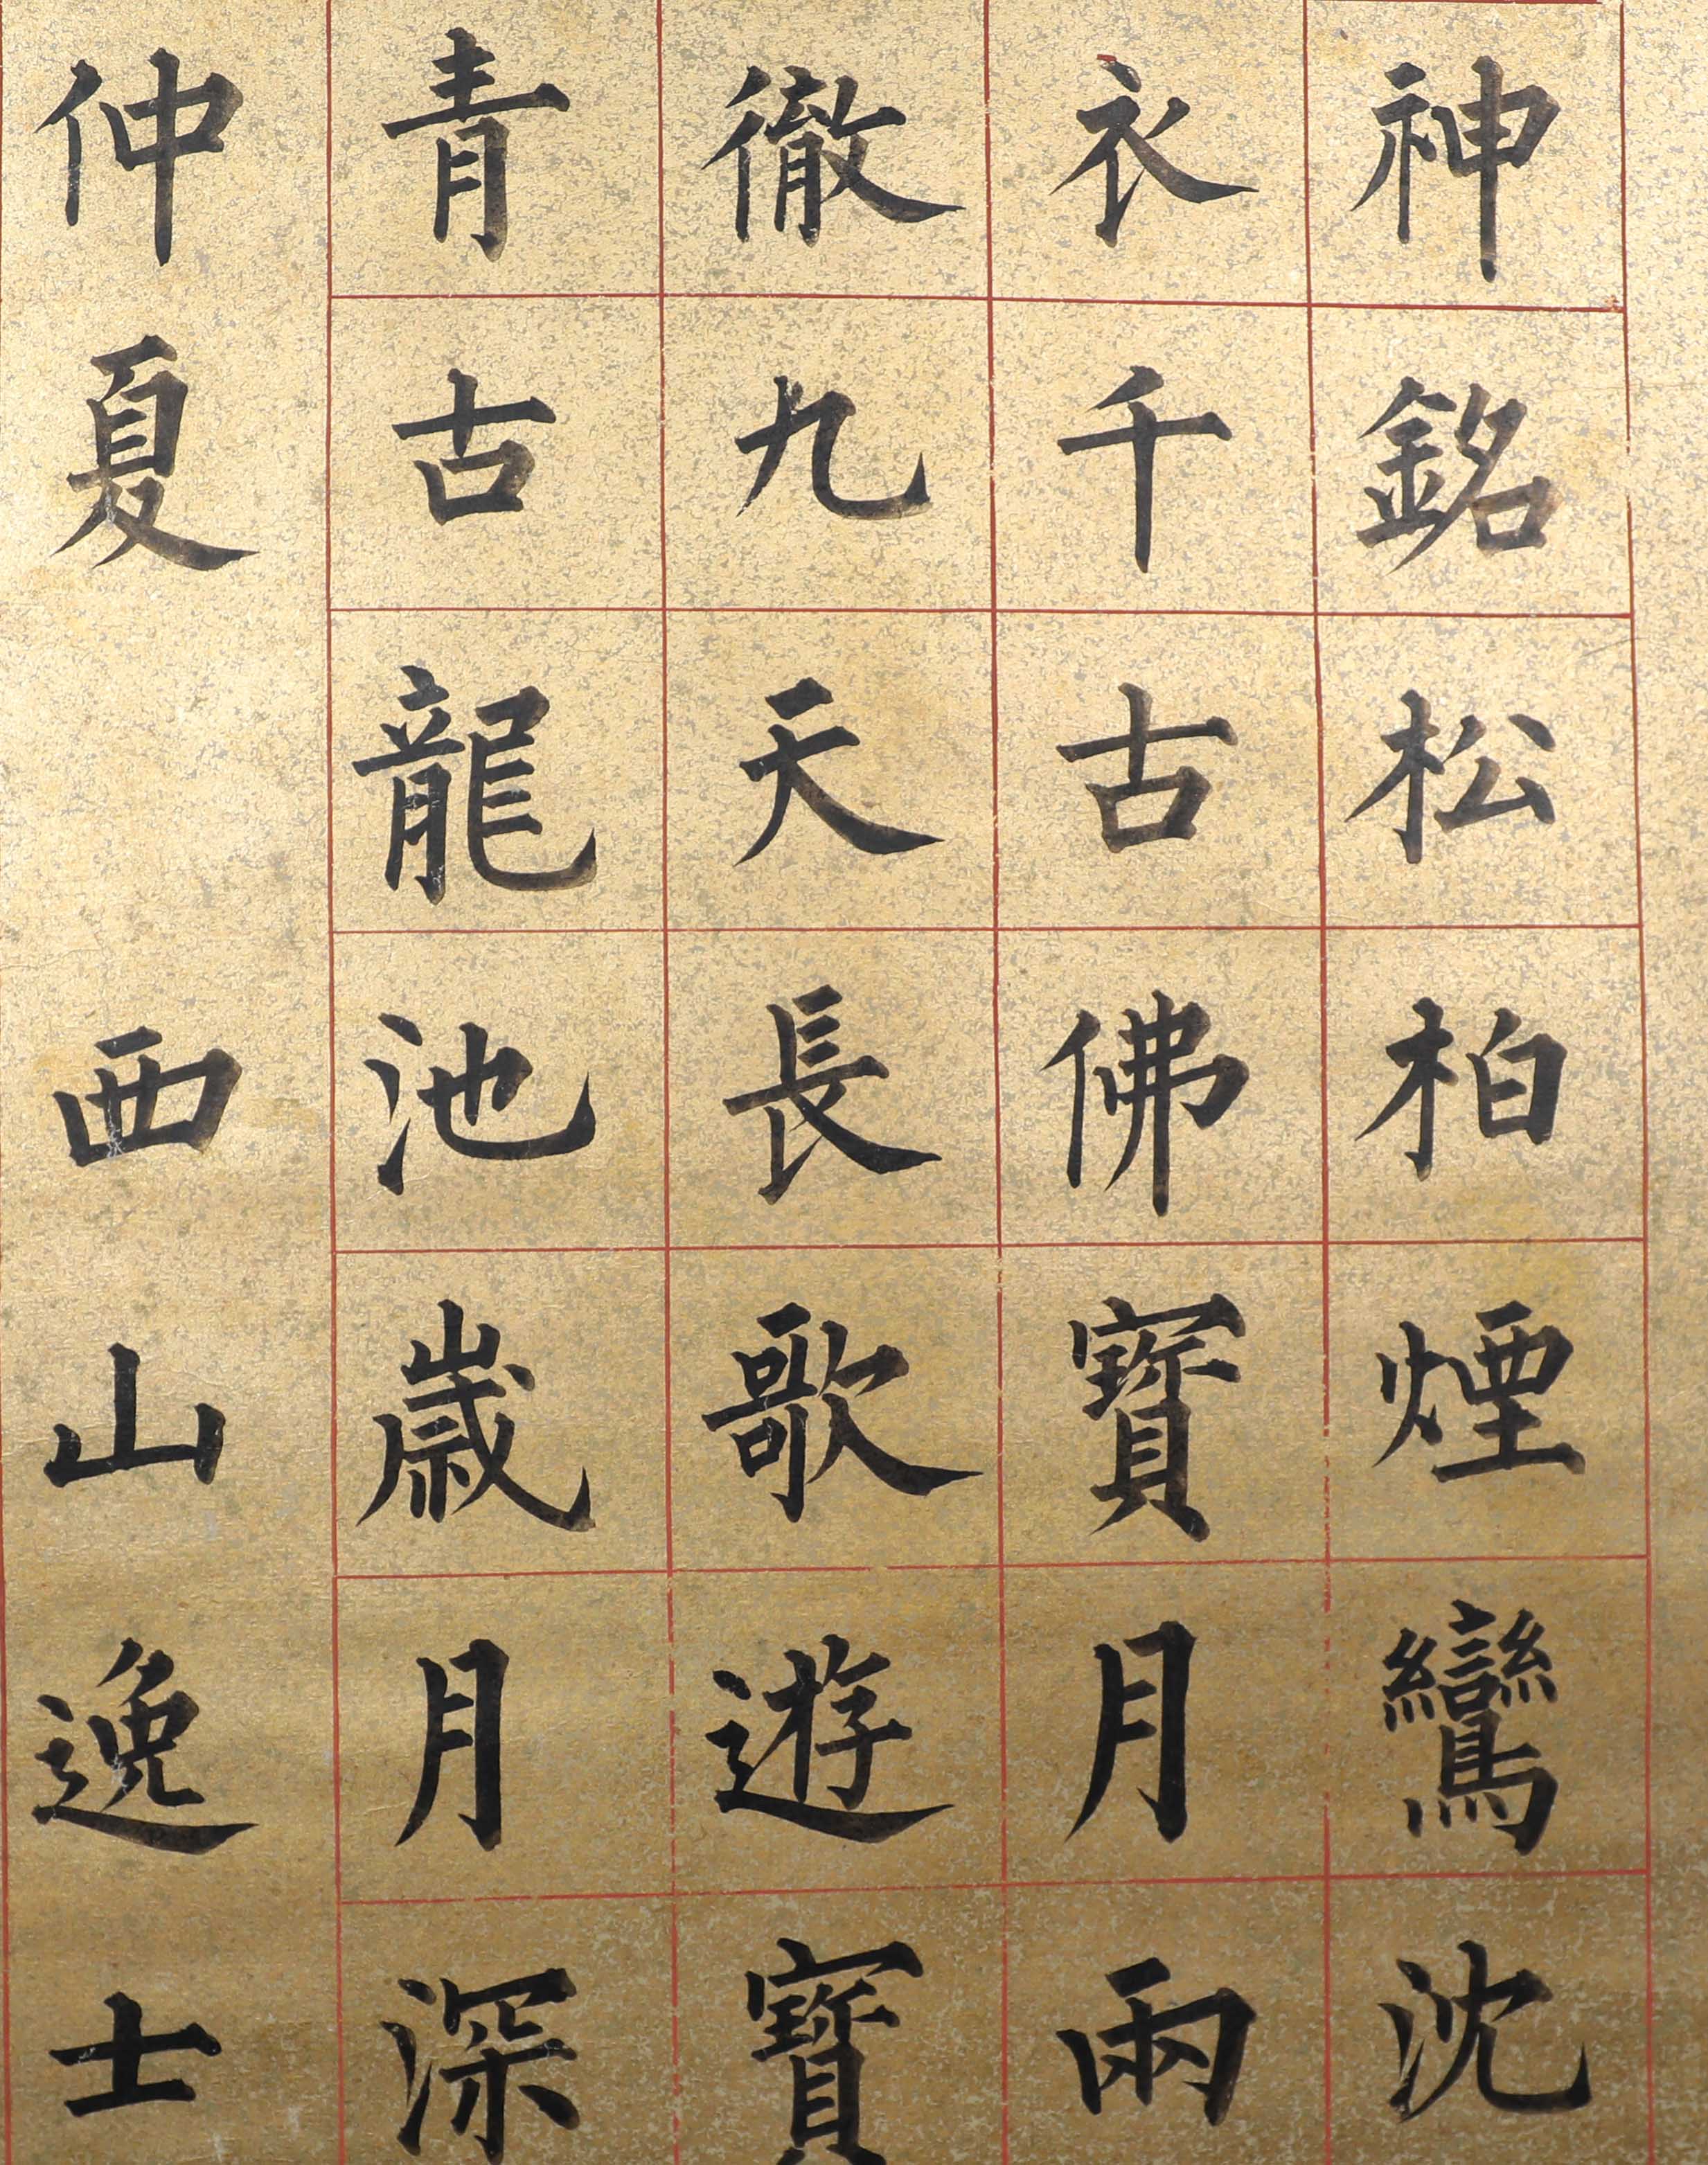 神銘松柏煙鸞沈
衣千古佛寶月兩
徹九天長歌遊寶
青古龍池歲月深
仲夏西山逸士